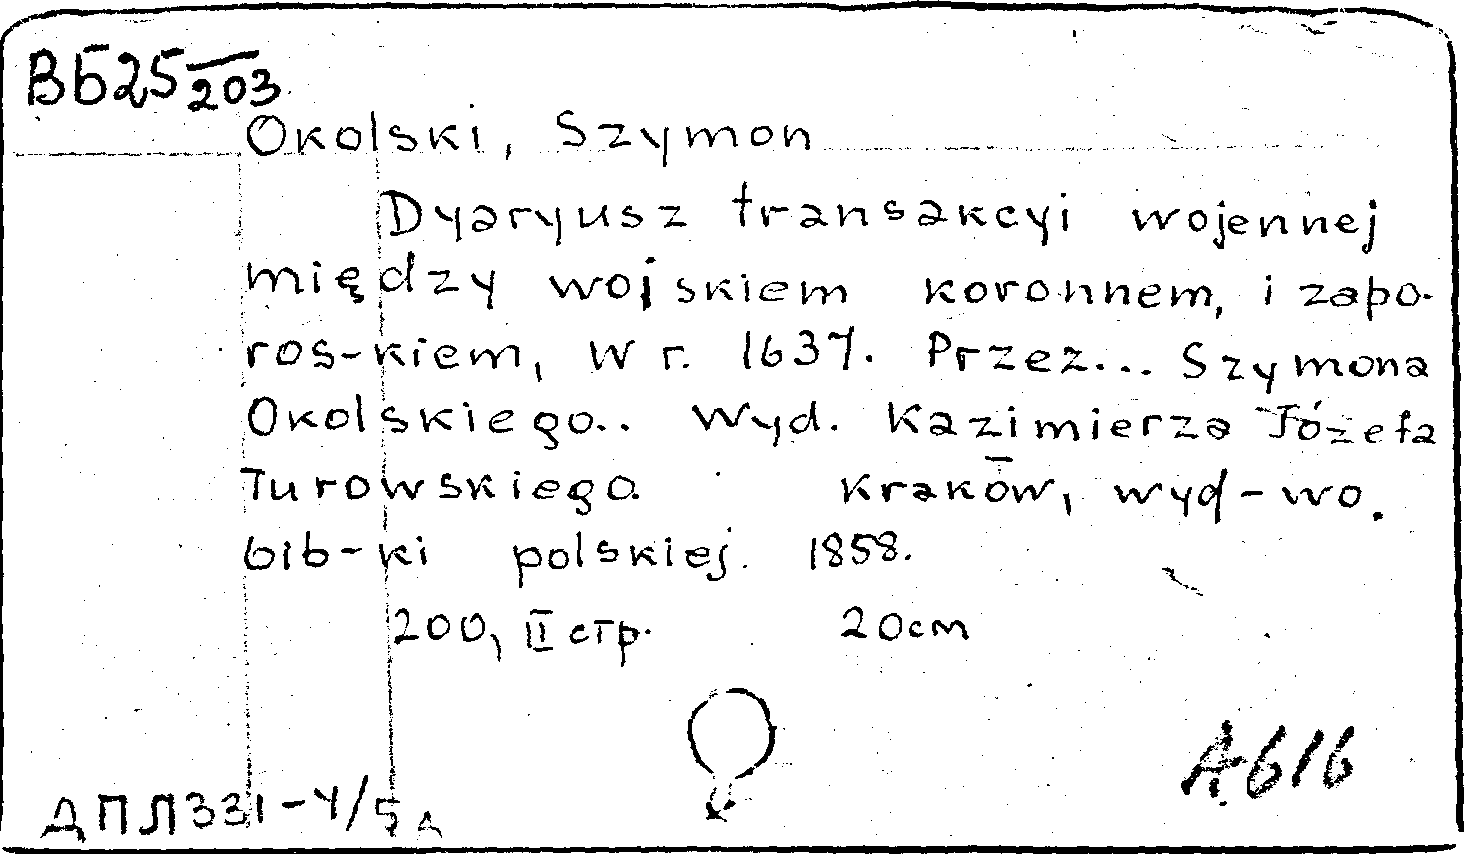 ВБ25 203
Okolski, Szymon
Dyaryusz transakcyi wojennej
między wojskiem koronnem, i zapo-
ros-kiem, w r. 1637. Przez... Szymona
Okolskiego.. Wyd. Kazimierza Józefa
Turowskiego. Kraków, wyd-wo.
bib-ki polskiej. 1858.
200, II стр. 20cm
A616
ДПЛ331-4/5д